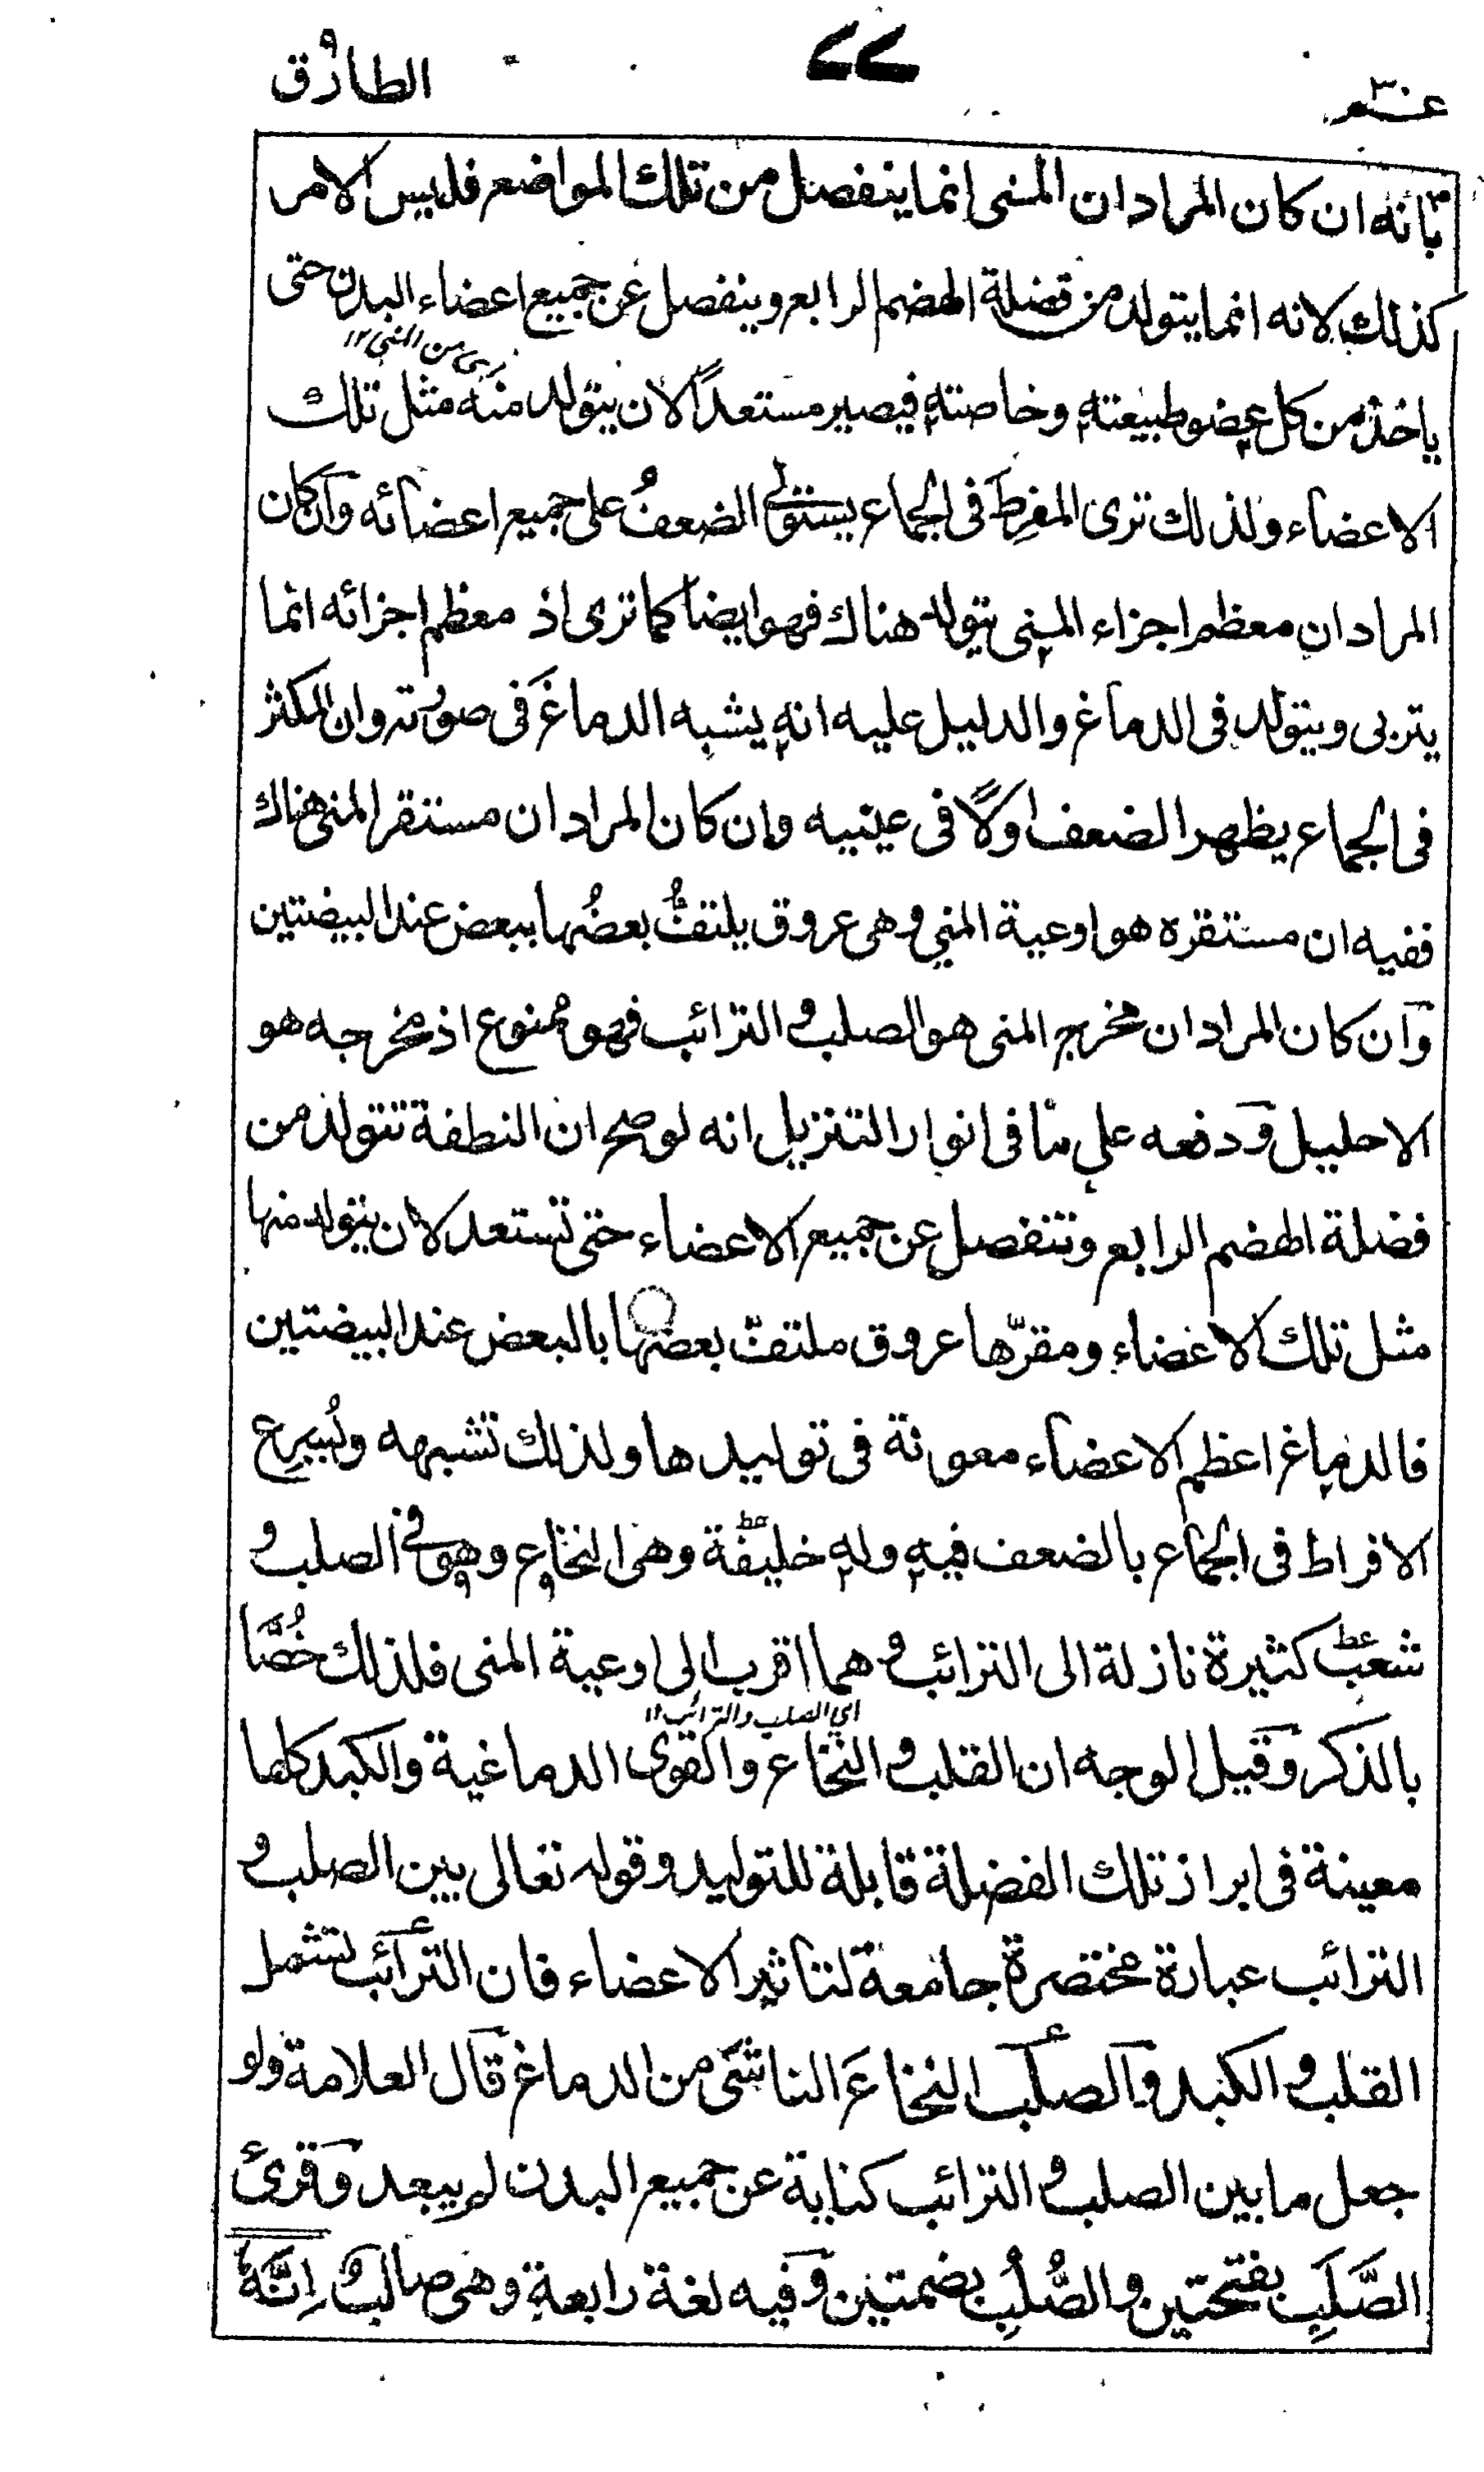 عم ٣٠
٧٧
الطارق
بأنه ان كان المراد ان المنى انما ينفصل من تلك المواضع فليس الامر
كذلك لانه انما يتولد من فضلة الهضم الرابع وينفصل عن جميع اعضاء البدن حتى
اى من المنى ١٢
ياخذ من كل عضو طبيعته وخاصته فيصير مستعداً لان يتولد منه مثل تلك
الاعضاء ولذلك ترى المفرِط فى الجماع يستولى الضعفُ على جميع اعضائه وان كان
المراد ان معظم اجزاء المنى يتولد هناك فهو ايضا كما ترى اذ معظم اجزائه انما
يتربى ويتولد فى الدماغ والدليل عليه انه يشبه الدماغَ فى صورته وان المكثر
فى الجماع يظهر الضعف اولًا فى عينيه وان كان المراد ان مستقر المنى هناك
ففيه ان مستقره هو اوعية المني وهى عروق يلتفُّ بعضُها ببعض عند البيضتين
وان كان المراد ان مخرج المنى هو الصلب و الترائب فهو ممنوع اذ مخرجه هو
الاحليل ودفعه على ما فى انوار التنزيل انه لو صح ان النطفة تتولد من
فضلة الهضم الرابع وتنفصل عن جميع الاعضاء حتى تستعد لان يتولد منها
مثل تلك الاعضاء ومقرّها عروق ملتفّ بعضها بالبعض عند البيضتين
فالدماغ اعظم الاعضاء معونة فى توليدها ولذلك تشبهه ويُسرِع
الافراط فى الجماع بالضعف فيه وله خليفة وهى النخاع وهو فى الصلب و
شعب كثيرة نازلة الى الترائب و هما اقرب الى اوعية المنى فلذلك خُصَّا
اى الصلب والترائب ١٢
بالذكر وقيل الوجه ان القلب و النخاع والقوى الدماغية والكبد كلها
معينة فى ابراز تلك الفضلة قابلة للتوليد وقوله تعالى بين الصلب و
الترائب عبارة مختصرة جامعة لتاثير الاعضاء فان الترائب تشمل
القلب و الكبد والصلب النخاعَ الناشى من الدماغ قال العلامة ولو
جعل ما بين الصلب و الترائب كناية عن جميع البدن لم يبعد وقرئ
الصَّلَبِ بفتحتين و الصُّلُبِ بضمتين وفيه لغة رابعة وهى صالب و اِنَّهٗ